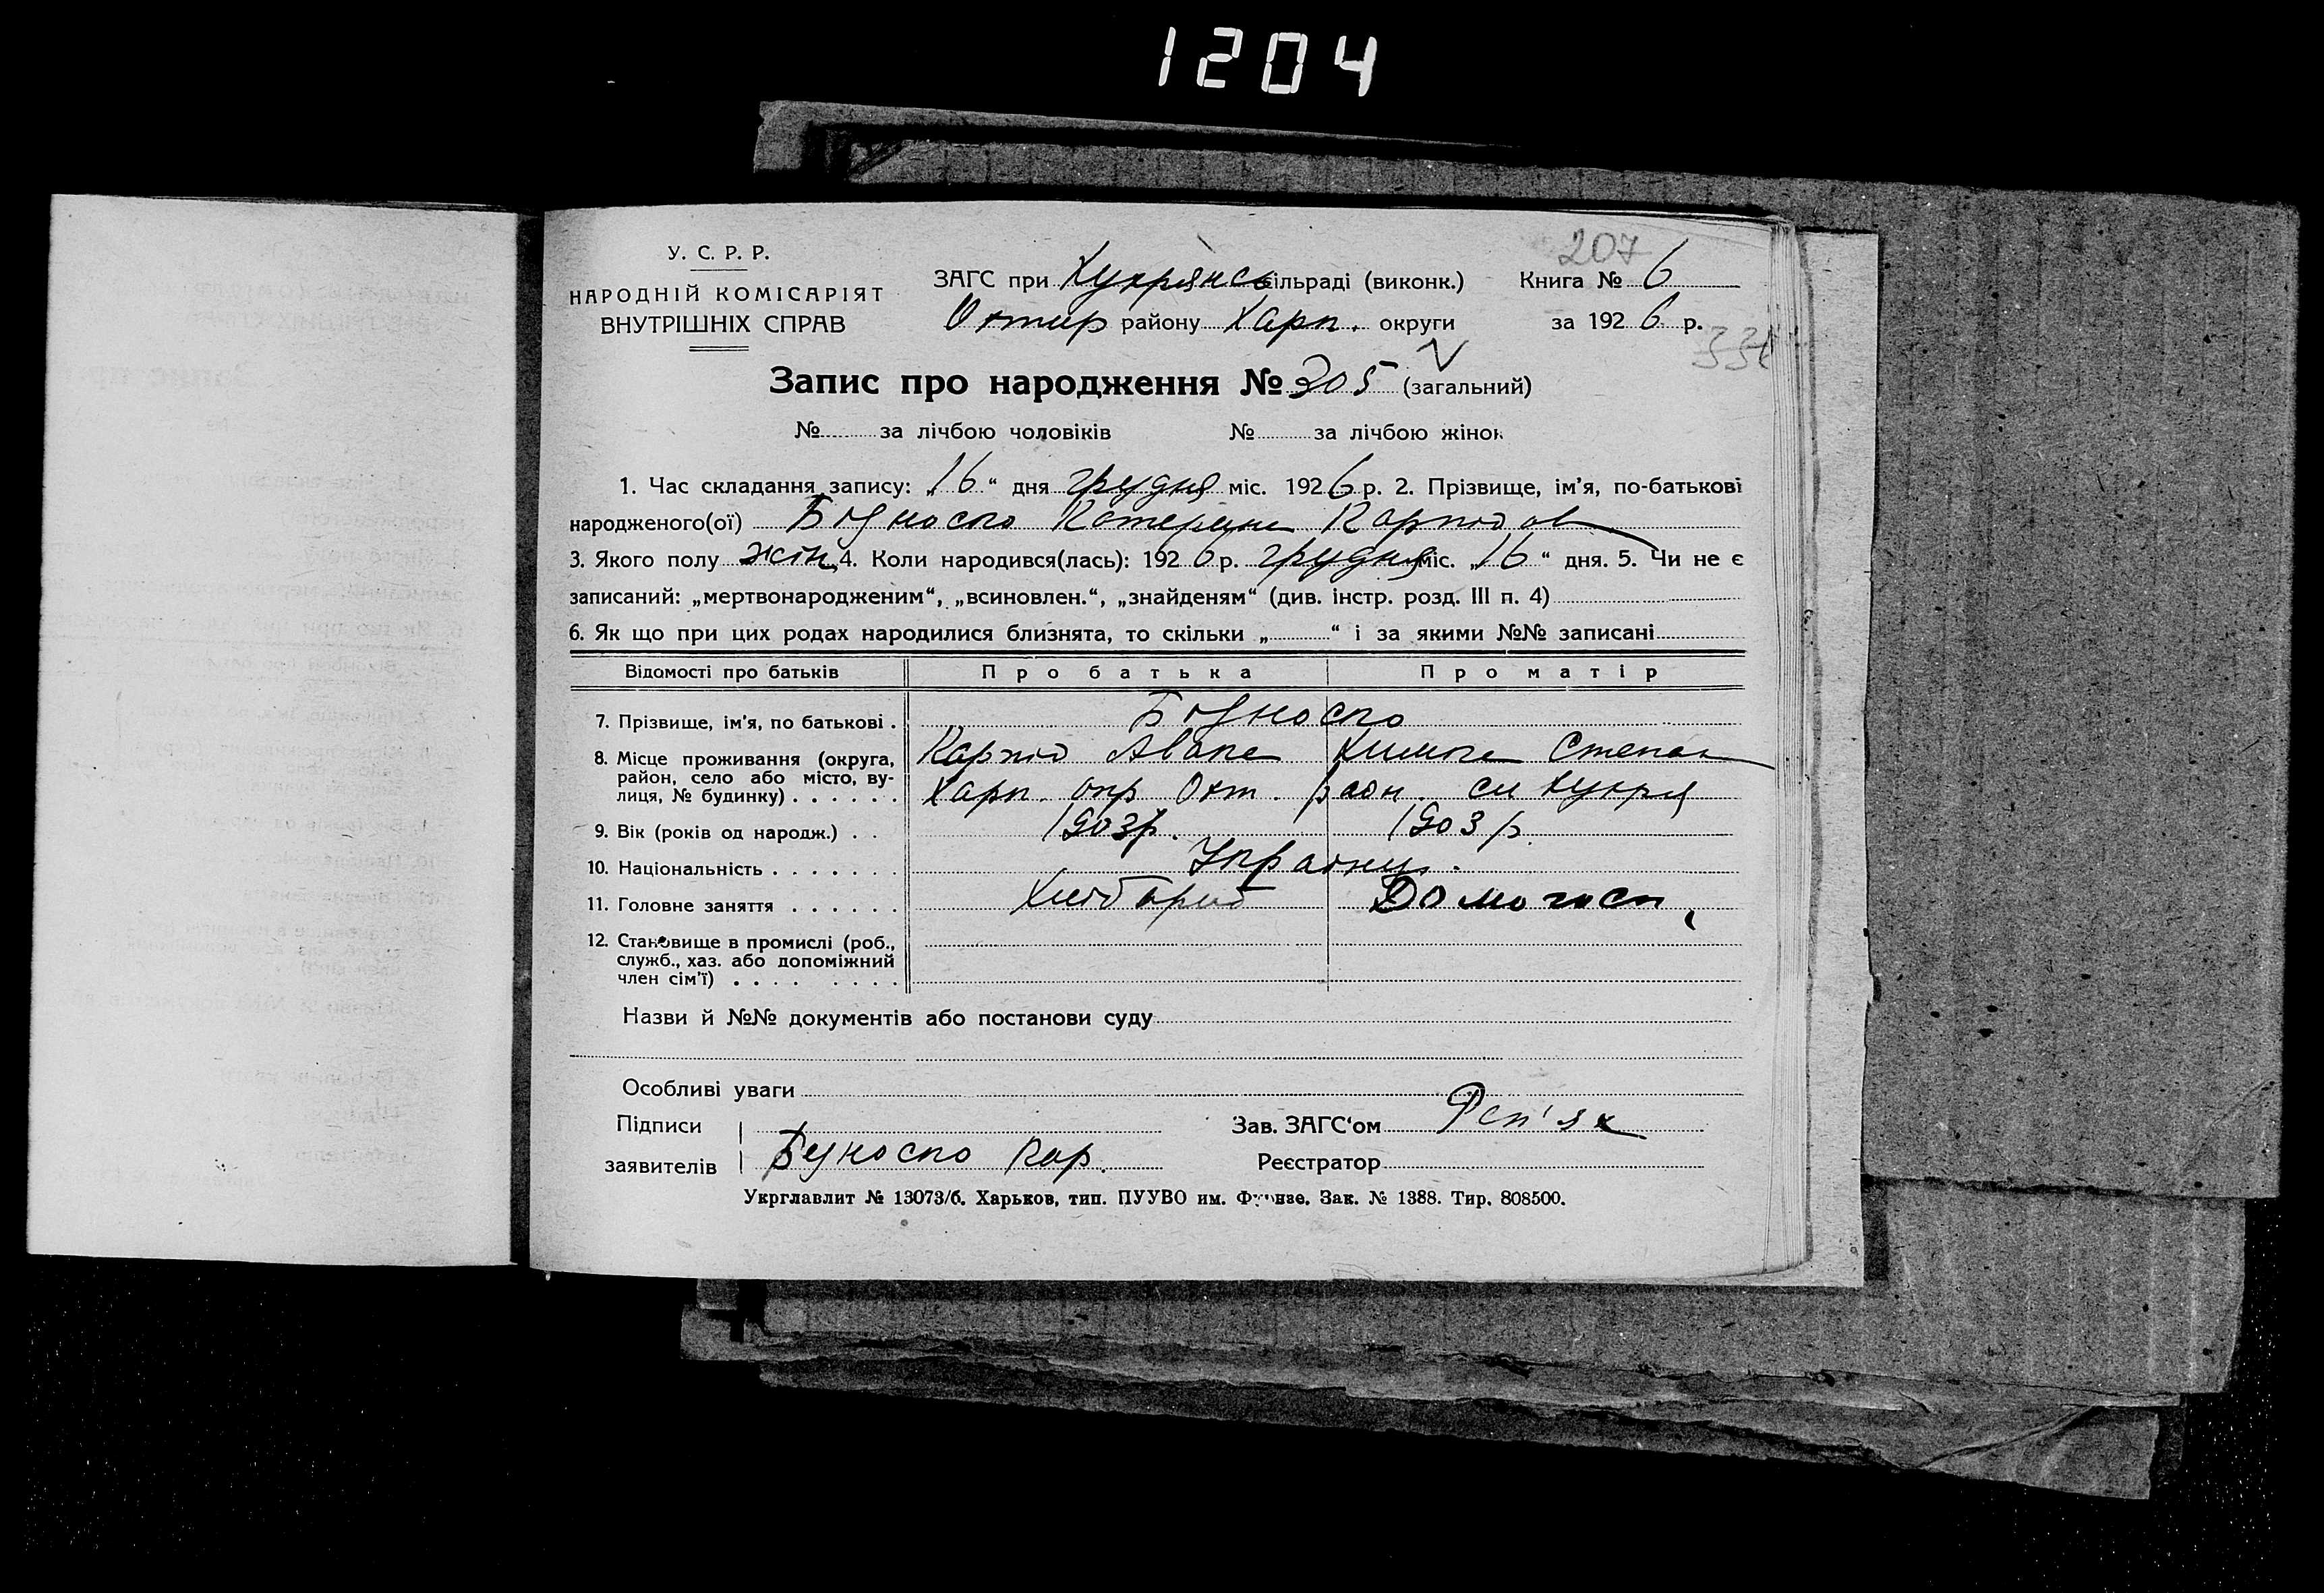 1204
207
У. С. Р. Р.
НАРОДНІЙ КОМІСАРІЯТ
ВНУТРІШНІХ СПРАВ
ЗАГС при Хухрянсь сільраді (виконк.)
Охтир району Харк. округи
Книга № 6
за 1926 р.
Запис про народження № 305 (загальний)
№ за лічбою чоловіків № за лічбою жінок
1. Час складання запису: „16“ дня грудня міс. 1926 р. 2. Прізвище, ім'я, по-батькові
народженого(ої) Катерина Карпов
3. Якого полу жін 4. Коли народився(лась): 1926 р. грудня міс. „16“ дня. 5. Чи не є
записаний: „мертвонародженим“, „всиновлен.“, „знайденям“ (див. інстр. розд. III п. 4)
6. Як що при цих родах народилися близнята, то скільки „ “ і за якими №№ записані
Відомості про батьків Про батька Про матір
7. Прізвище, ім'я, по батькові .
8. Місце проживання (округа,
район, село або місто, вулиця, № будинку) . . . . . .
Карпо Степан
Харк. окр Охт. раон. Хухря
9. Вік (років од народж.) . . 1903р. 1903 р.
10. Національність . . . . . . . Украонци.
11. Головне заняття . . . . . . Хлібороб Домогосп,
12. Становище в промислі (роб.,
служб., хаз. або допоміжний
член сім'ї) . . . . . . . .
Назви й №№ документів або постанови суду
Особливі уваги
Підписи
заявителів Кар.
Зав. ЗАГС‘ом
Реєстратор
Укрглавлит № 13073/б. Харьков, тип. ПУУВО им. Фрунзе. Зак. № 1388. Тир. 808500.